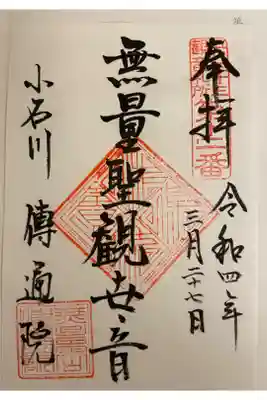 奉拝
令和四年
三月二十七日
無量聖観世音
小石川 傳通院